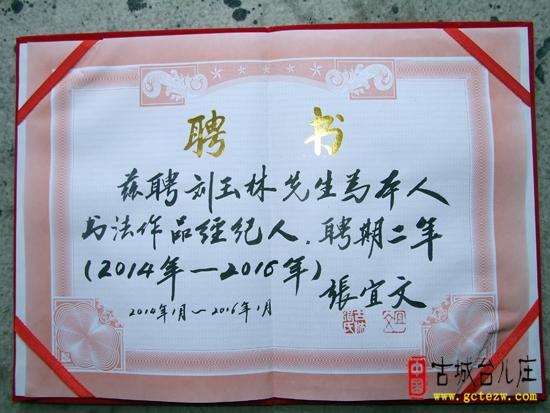 聘 书
兹聘刘玉林先生為本人
书法作品经纪人.聘期二年
(2014年—2016年)
張宜文
2014年1月~2016年1月
中国
古城台儿庄
www.gctezw.com